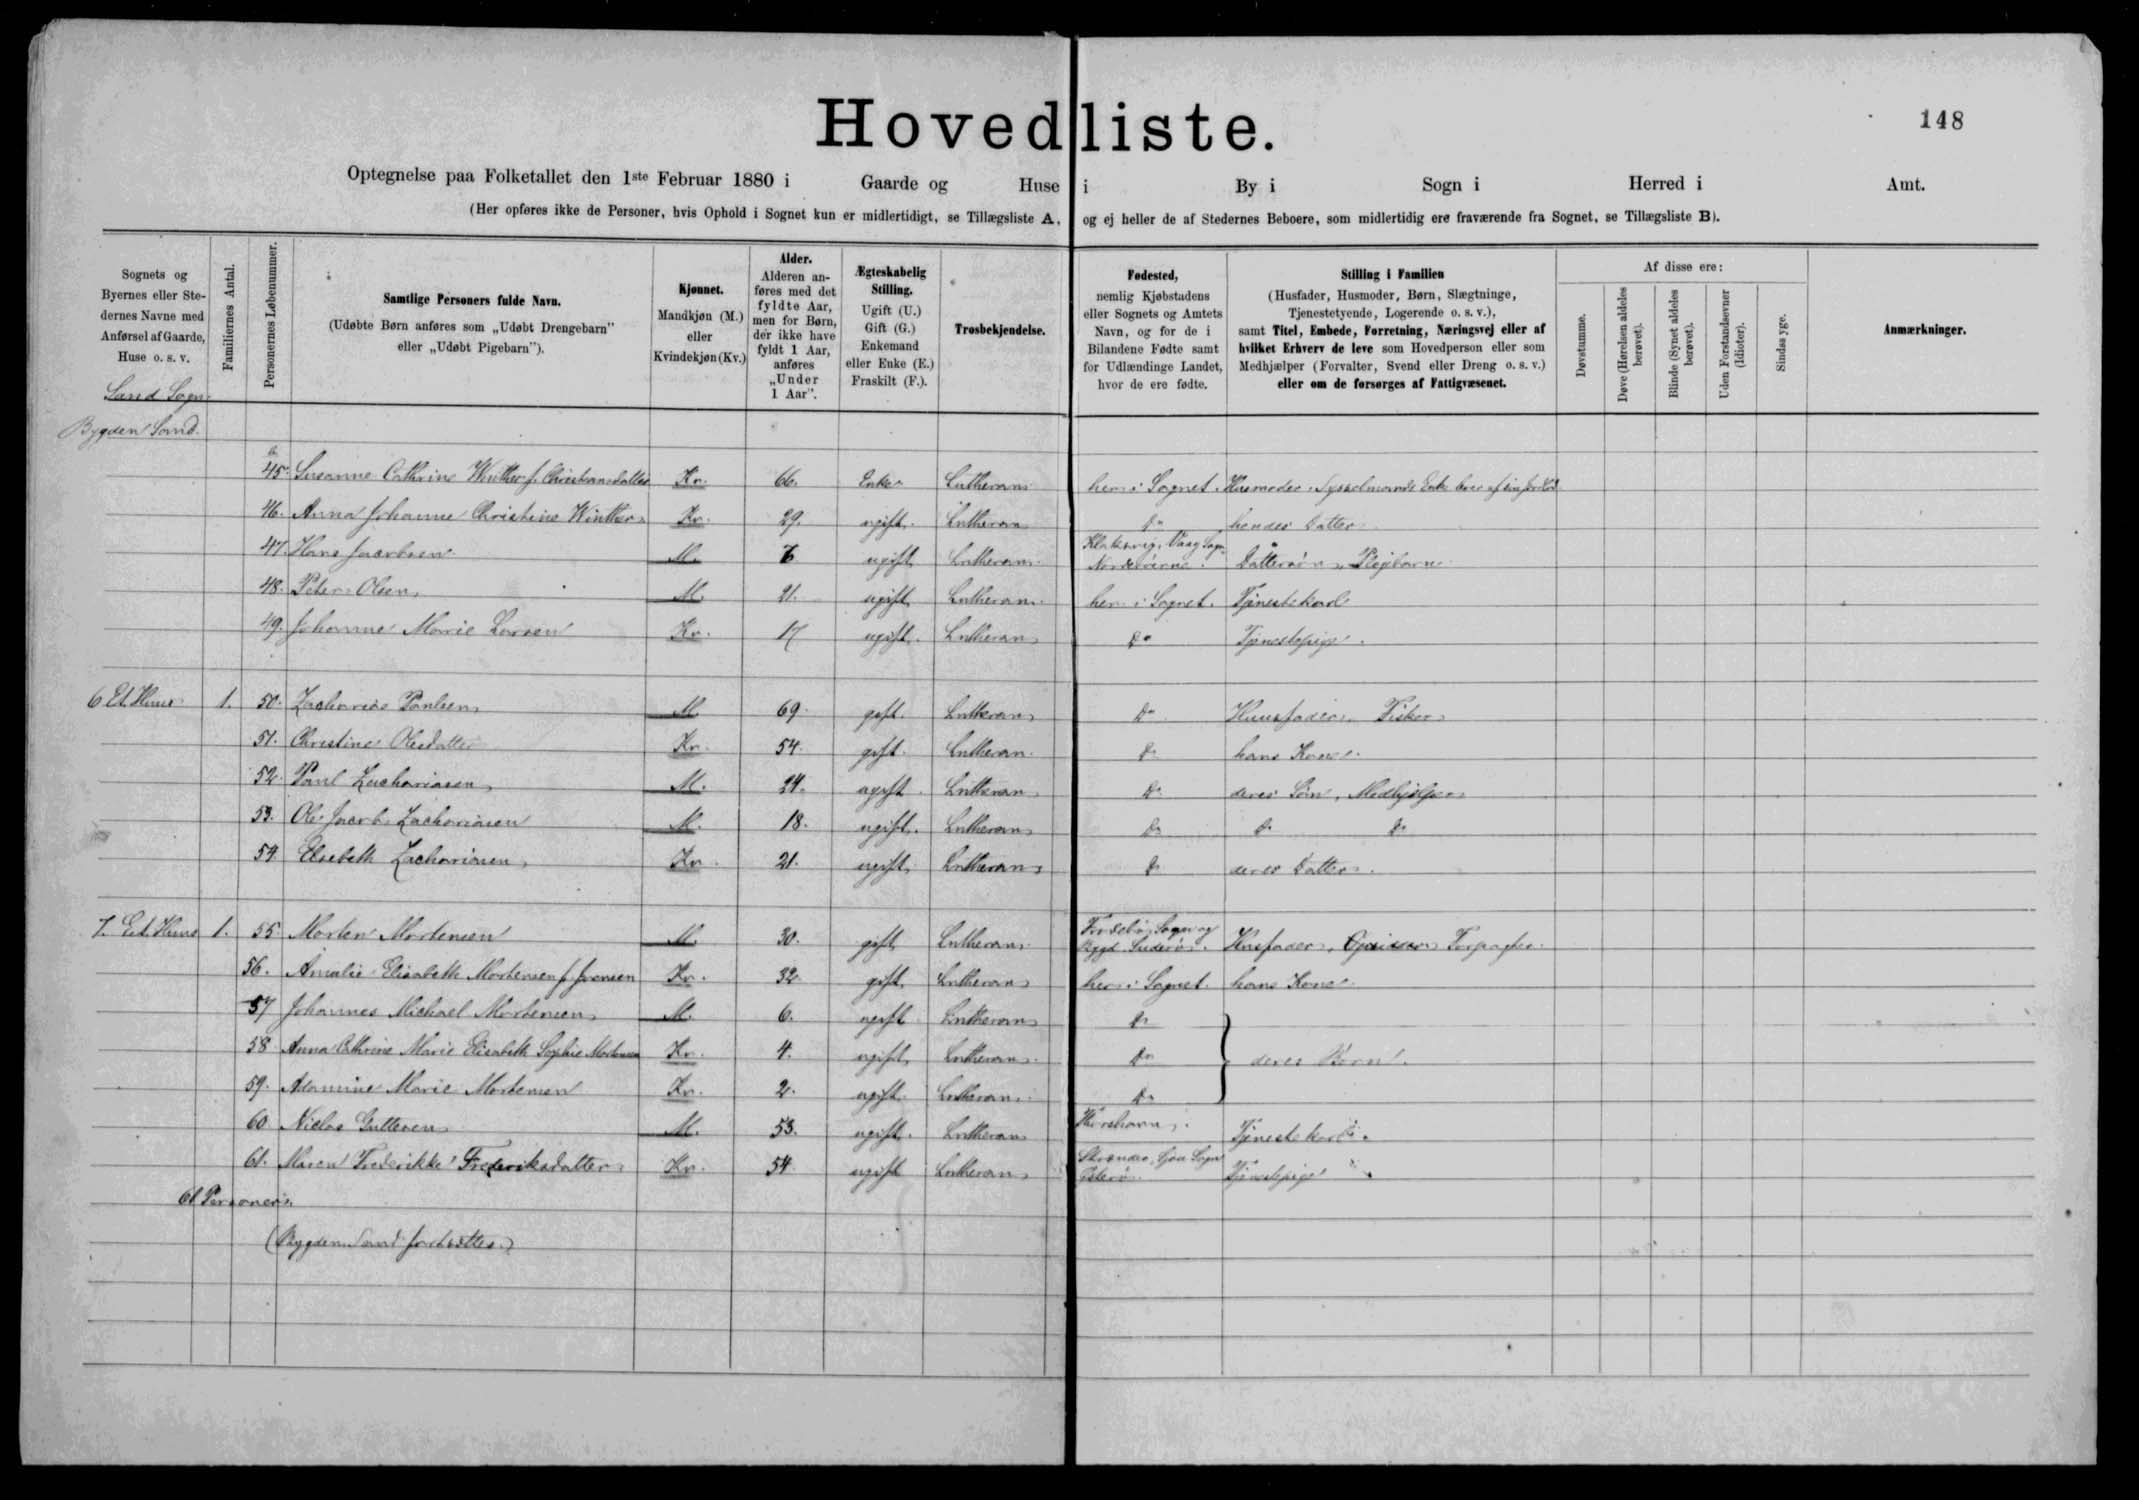 Hovedliste.
148
Optegnelse paa Folketallet den 1ste Februar 1880 i Gaarde og Huse i By i Sogn i Herred i Amt.
(Her opføres ikke de Personer, hvis Ophold i Sognet kun er midlertidigt, se Tillægsliste A, og ej heller de af Stedernes Beboere, som midlertidig ere fraværende fra Sognet, se Tillægsliste B).
Sognets og
Byernes eller Ste-
dernes Navne med
Anførsel af Gaarde,
Huse o. s. v.
Familiernes Antal.
Personernes Løbenummer.
Samtlige Personers fulde Navn.
(Udøbte Børn anføres som „Udøbt Drengebarn"
eller „Udøbt Pigebarn").
Kjønnet.
Mandkjøn (M.)
eller
Kvindekjøn (Kv.)
Alder.
Alderen an-
føres med det
fyldte Aar,
men for Børn,
der ikke have
fyldt 1 Aar,
anføres
„Under
1 Aar".
Ægteskabelig
Stilling.
Ugift (U.)
Gift (G.)
Enkemand
eller Enke (E.)
Fraskilt (F.).
Trosbekjendelse.
Fødested,
nemlig Kjøbstadens
eller Sognets og Amtets
Navn, og for de i
Bilandene Fødte samt
for Udlændinge Landet,
hvor de ere fødte.
Stilling i Familien
(Husfader, Husmoder, Børn, Slægtninge,
Tjenestetyende, Logerende o. s. v.),
samt Titel, Embede, Forretning, Næringsvej eller af
hvilket Erhverv de leve som Hovedperson eller som
Medhjælper (Forvalter, Svend eller Dreng o. s. v.)
eller om de forsørges af Fattigvæsenet.
Af disse ere:
Døvstumme.
Døve (Hørelsen aldeles
berøvet).
Blinde (Synet aldeles
berøvet).
Uden Forstandsevner
(Idioter).
Sindssyge.
Anmærkninger.
Sand Sogn
Bygden Sand.
45. Susanne Cathrine Winther f. Christiansdatter Kv. 66. Enke Lutheran her i Sognet. Husmoder, Sysselmands Enke lever af sin Jordlod
46. Anna Johanne Christine Winther Kv. 29. ugift. Lutheran Do hendes Datter
47. Hans Jacobsen M. 7 ugift Lutheran Klaksvig, Vaag Sogn Norderøerne. Dattersøn, Plejebarn
48. Peter Olsen M. 21. ugift Lutheran her i Sognet. Tjenestekarl
49. Johanne Marie Larsen Kv. 17 ugift. Lutheran Do Tjenestepige.
6 Et Huus 1. 50. Zacharias Poulsen M. 69. gift. Lutheran Do Huusfader, Fisker
51. Christine Olesdatter Kv. 54. gift. Lutheran Do hans Kone.
52. Poul Zachariasen M. 24. ugift Lutheran Do deres Søn, Medhjælper
53. Ole Jacob Zachariasen M. 18. ugift. Lutheran Do Do Do
54. Elsebeth Zachariasen Kv. 21. ugift. Lutheran Do deres Datter.
7. Et Huus 1. 55. Morten Mortensen M. 30. gift Lutheran Frodebø Sogn og Bygd Suderø. Husfader, Forpagter
56. Amalie Elisabeth Mortensen f. Joensen Kv. 32 gift. Lutheran her i Sognet hans Kone
57 Johannes Michael Mortensen M. 6. ugift Lutheran Do
58 Anna Cathrine Marie Elisabeth Sophie Mortensen Kv. 4. ugift Lutheran Do deres Børn.
59. Adamine Marie Mortensen Kv. 2. ugift. Lutheran Do
60 Niclas Guttesen M. 53. ugift. Lutheran Thorshavn. Tjenestekarl.
61. Maren Frederikke Frederiksdatter Kv. 54 ugift Lutheran Sogn Østerø Tjenestepige
61 Personer.
(Bygden Sand fortsættes.)